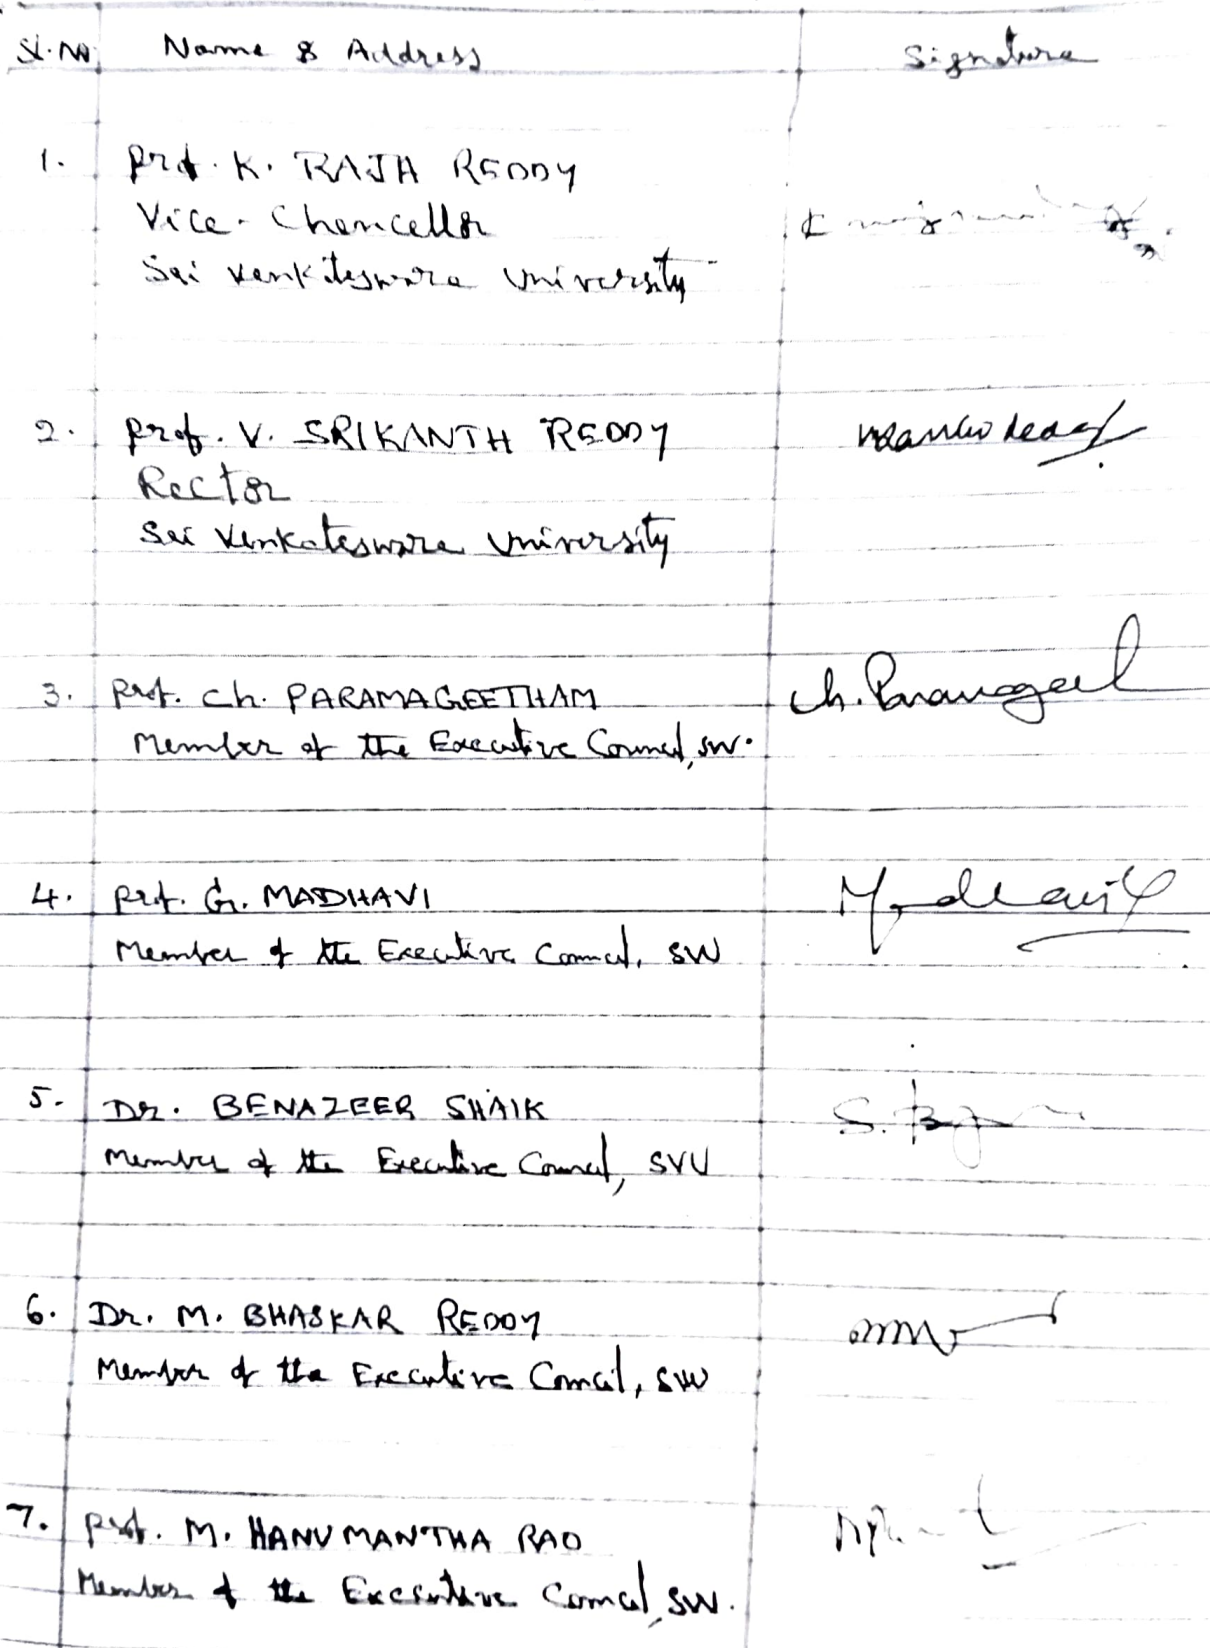 Sl.No. Name & Address Signature
1. Prof. K. RAJA REDDY
Vice-Chancellor
Sri Venkateswara University
2. Prof. V. SRIKANTH REDDY
Rector
Sri Venkateswara University
3. Prof. Ch. PARAMAGEETHAM Ch. Paramageet
Member of the Executive Council, SVU.
4. Prof. G. MADHAVI Madhavi
Member of the Executive Council, SVU
5. Dr. BENAZEER SHAIK
Member of the Executive Council, SVU
6. Dr. M. BHASKAR REDDY
Member of the Executive Council, SVU
7. Prof. M. HANUMANTHA RAO
Member of the Executive Council, SVU.